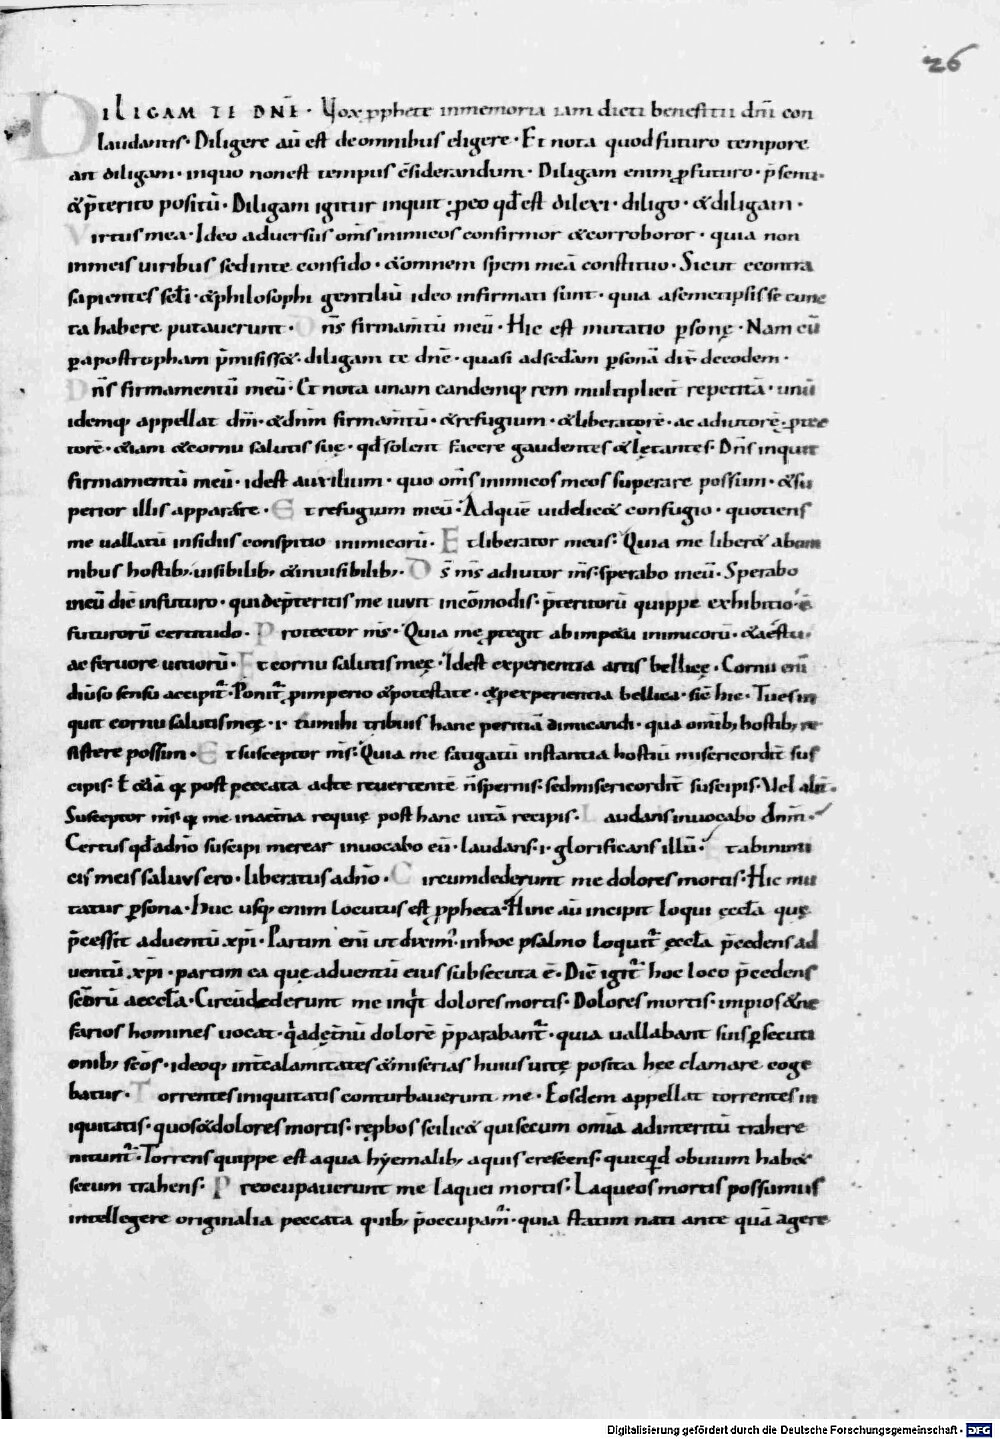 26
DILIGAM TE DNĒ · Vox ꝓphete inmemoria iam dicti beneficii dnī con
laudantis · Diligere aū est deomnibus eligere · Et nota quod futuro tempore
ait diligam · inquo nonest tempus c̄siderandum · Diligam enim ꝓfuturo · p̄senti ·
&p̄terito positū · Diligam igitur inquit · ꝓeo qd̄ est dilexi · diligo · &diligam ·
Virtus mea · Ideo adversus om̄s inimicos confirmor &corroboror · quia non
inmeis uiribus sed inte confido · &omnem spem meā constituo · Sicut econtra
sapientes sc̄li · &philosophi gentiliū ideo infirmati sunt · quia asemetipsis se cunc
ta habere putauerunt · Dn̄s firmam̄tū meū · Hic est mutatio ꝑsonę · Nam cū
ꝑapostropham p̄misiss& · diligam te dnē · quasi adsed̄am ꝑsonā dix̄ deeodem ·
Dn̄s firmamentū meū · Et nota unam eandemq; rem multiplicit̄ repetitā · unū
idemq; appellat dm̄ · &dnm̄ firmam̄tū · &refugium · &liberatorē · ac adiutorē · ꝓtec
torē · &iam &cornu salutis suę · qd̄ solent facere gaudentes &lętantes · Dn̄s inquit
firmamentū meū · idest auxilium · quo om̄s inimicos meos superare possum · &su
perior illis apparere · Et refugium meū · Adquē uidelic& confugio · quotiens
me uallatū insidiis conspitio inimicorū · Et liberator meus · Quia me liber& abom
nibus hostib; uisibilib; &inuisibilib; · Ds̄ ms̄ adiutor ms̄ · sperabo ineū · Sperabo
ineū dic̄ infuturo · qui dep̄teritis me iuvit incōmodis · p̄teritorū quippe exhibitio · ē
futurorū certitudo · Protector ms̄ · Quia me ꝓtegit abimp&u inimicorū · &aestu ·
ac feruore uitiorū · Et cornu salutis meę · Idest experientia artis bellicę · Cornu eni
diuso sensu accipit̄ · Ponit̄ ꝓimperio &potestate · &ꝓexperientia bellica · sic̄ hic · Tu es in
quit cornu salutis meę · i · tu mihi tribuis hanc peritiā dimicandi · qua omīb; hostib; re
sistere possim · Et susceptor ms̄ · Quia me fatigatū instantia hostiū misericordit̄ sus
cipis · postpeccata adte reuertentē n̄spernis · sedmisericordit̄ suscipis · Vel alit̄ ·
Susceptor ms̄ me inaet̄na requię post hanc uitā recipis · Laudans inuocabo dnm̄ ·
Certus qd̄ adnō suscipi merear inuocabo eū · laudans · i · glorificans illū · Et abinimi
cis meis saluus ero · liberatus adnō · Circumdederunt me dolores mortis · Hic mu
tatur ꝑsona · Huc usq; enim locutus est ꝓpheta · Hinc aū incipit loqui ęccl̄a quę
p̄cessit aduentū xp̄i · Partim enī ut dixim; inhoc psalmo loquit̄ ęccl̄a p̄cedens ad
uentū xp̄i · partim ea quę aduentū eius subsecuta ē · Dic̄ igit̄ hoc loco p̄cedens
sc̄orū aeccl̄a · Circūdederunt me inqt̄ dolores mortis · Dolores mortis · impios &ne
farios homines uocat · qadęt̄nū dolorē p̄parabant̄ · quia uallabant suis ꝑsecuti
onib; sc̄os · ideoq; int̄calamitates &miserias huius uitę posita hęc clamare coge
batur · Torrentes iniquitatis conturbauerunt me · Eosdem appellat torrentes in
iquitatis · quos&dolores mortis · rep̄bos scilic& qui secum omīa adinteritū trahere
nitunt̄ · Torrens quippe est aqua hyemalib; aquis crescens · quicqd̄ obuium hab&
secum trahens · Preocupauerunt me laquei mortis · Laqueos mortis possumus
intellegere originalia peccata quib; p̄occupam̄ · quia statim nati ante quā agere
Digitalisierung gefördert durch die Deutsche Forschungsgemeinschaft - DFG